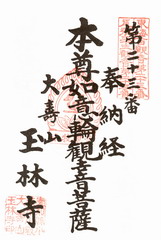 第二十三番
奉納経
本尊如意輪観音菩薩
大寿山
玉林寺